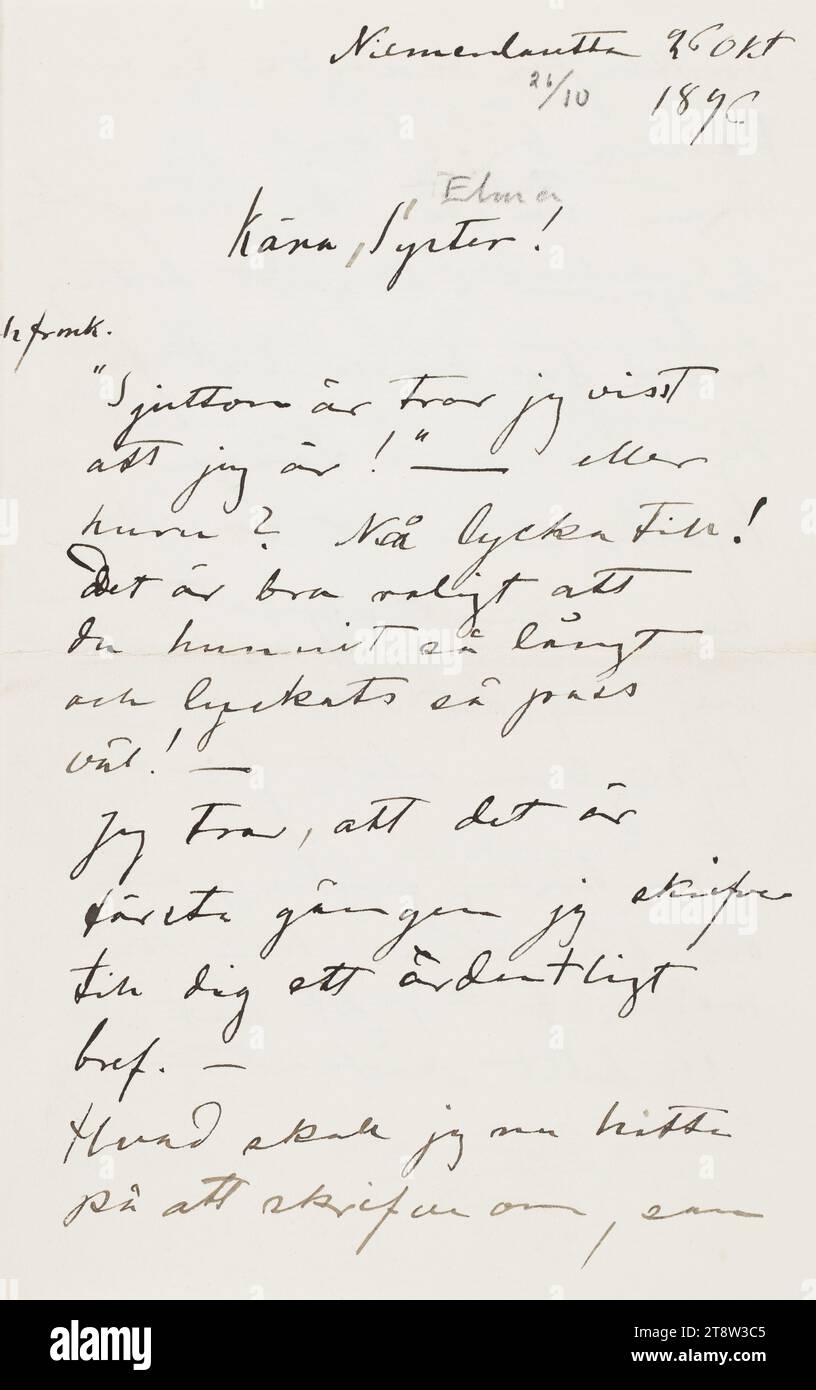 Niemenlautta 26 Okt
26/10 1896
Elma
Kära, Syster!
frank.
"Sjutton år tror jag visst
att jag är!" — eller
huru? Nå lycka till!
Det är bra roligt att
du hunnit så långt
och lyckats så pass
väl! —
Jag tror, att det är
första gången jag skrifver
till dig ett ordentligt
bref. —
Hvad skall jag nu hitta
på att skrifva om, som
alamy
Image ID: 2T8W3C5
www.alamy.com